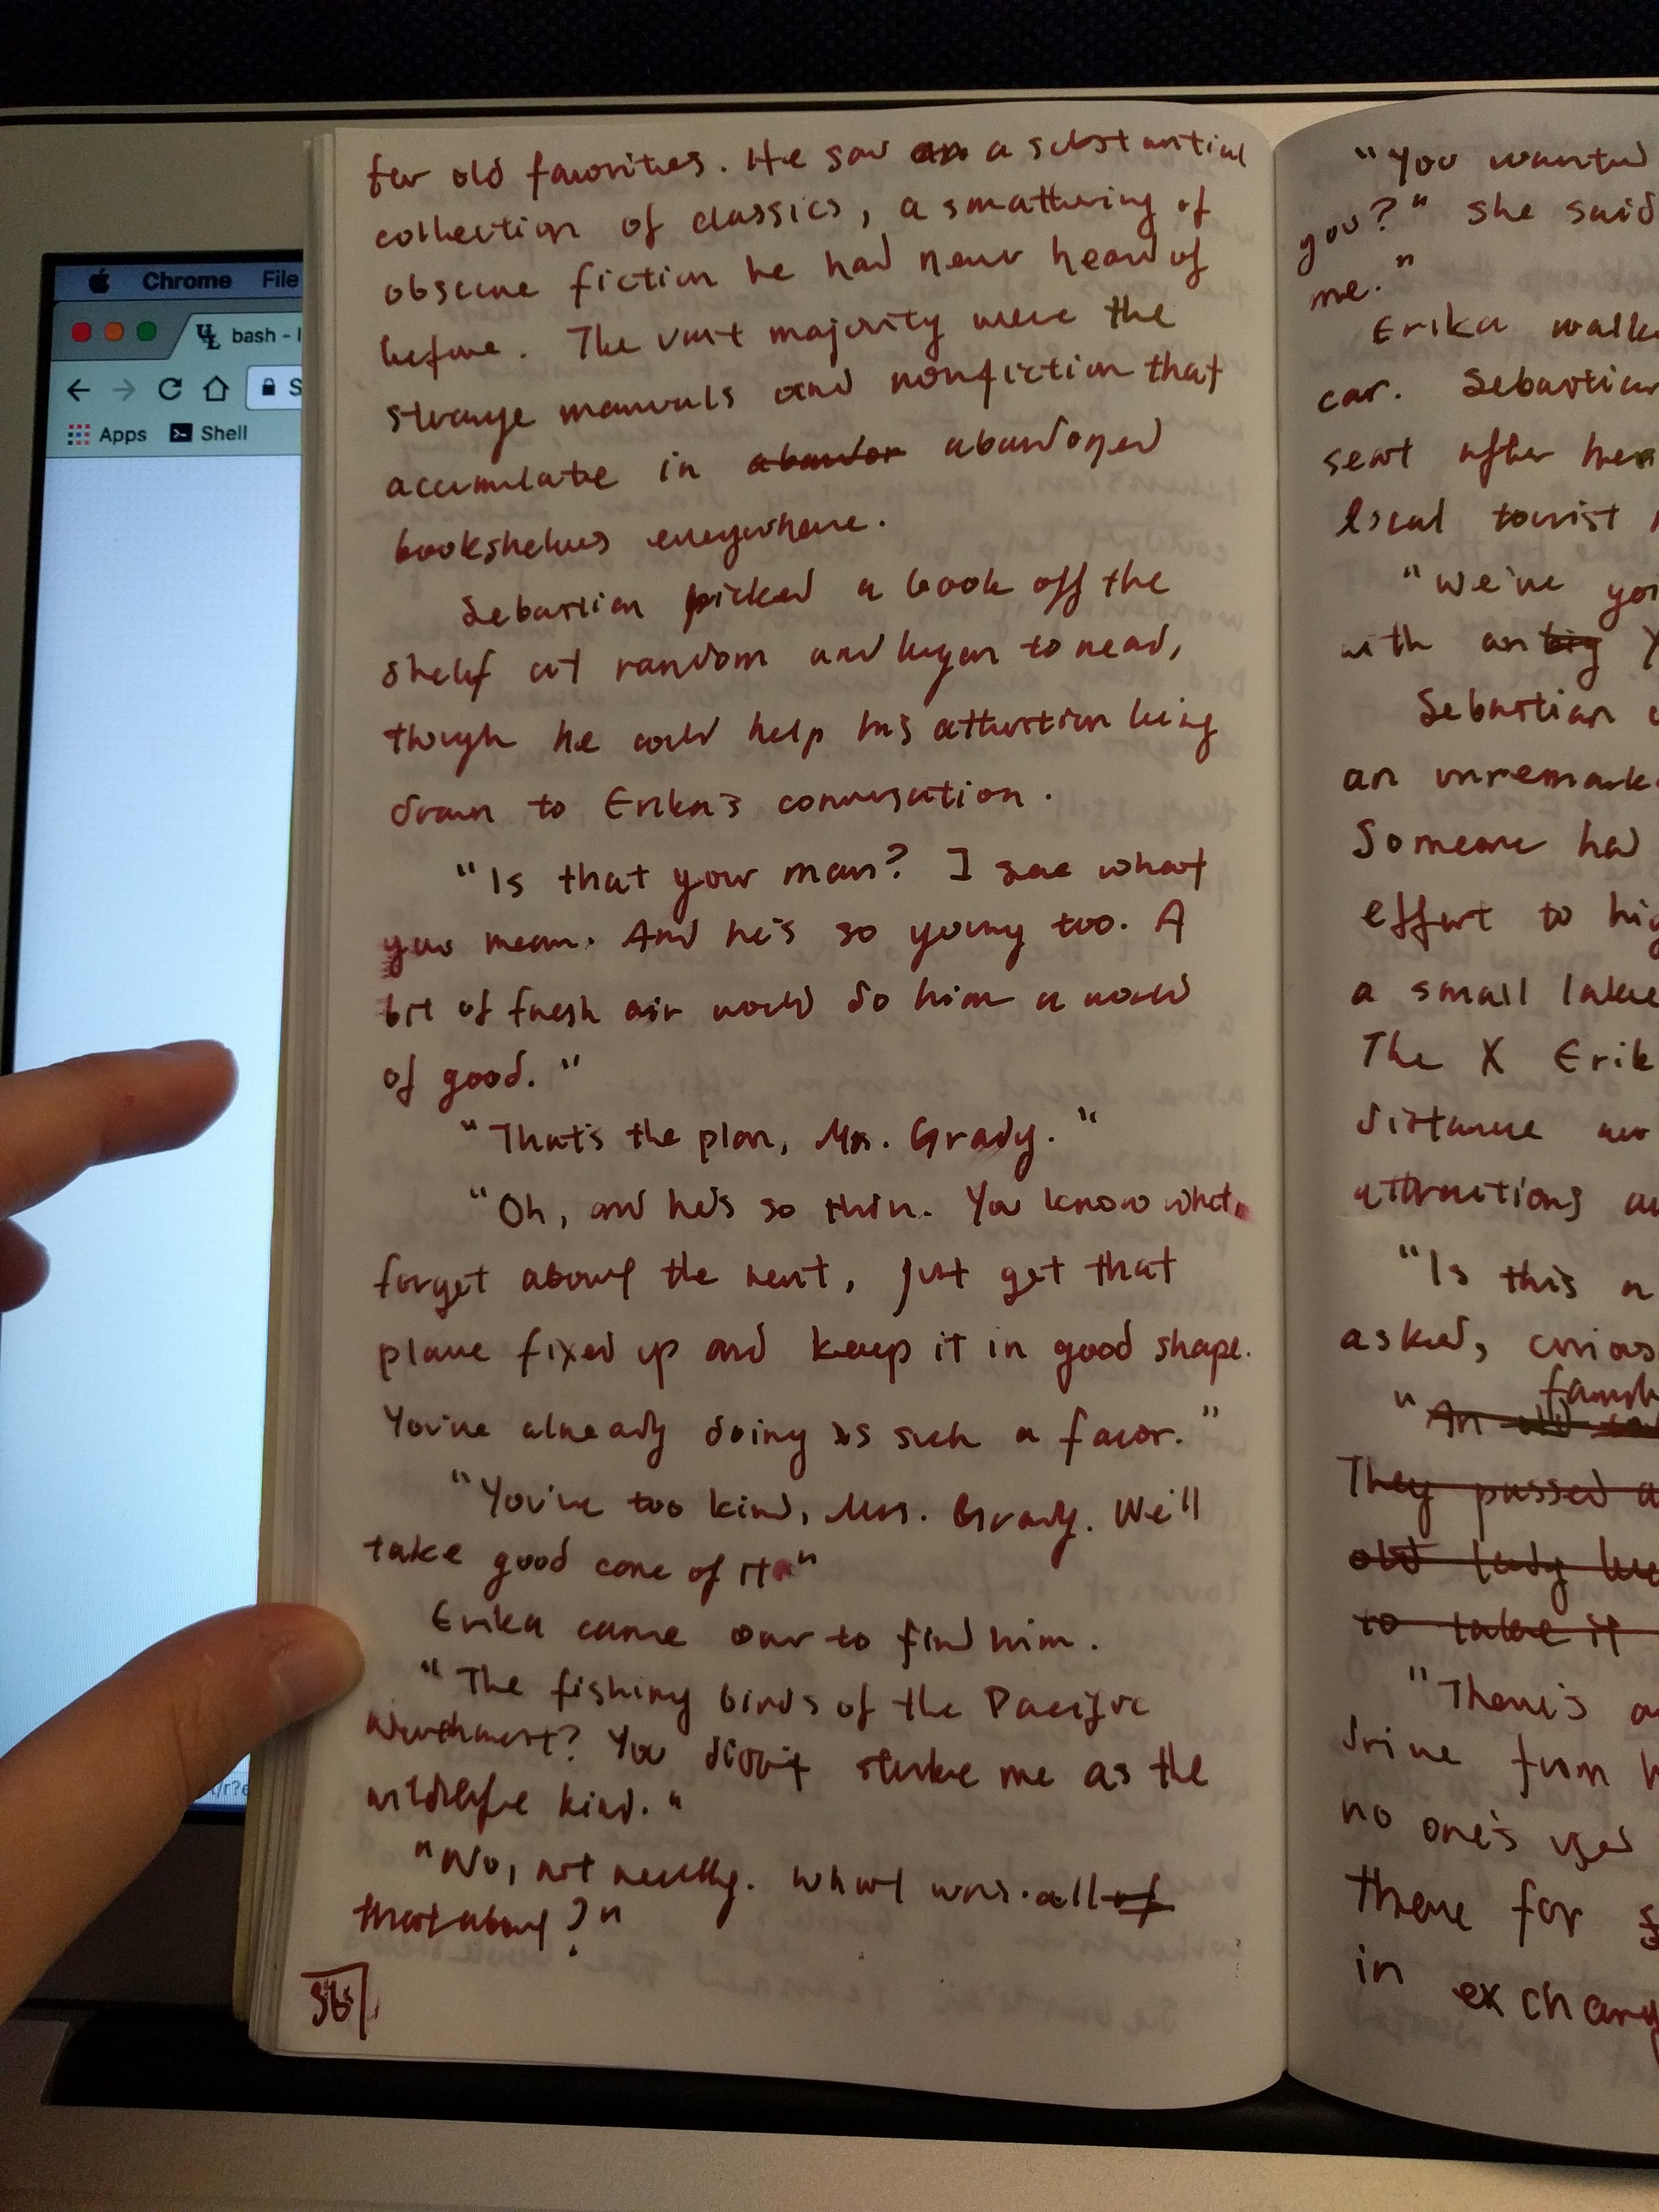 Chrome File
bash - 
Apps Shell
few old favorites. He saw an a substantial
collection of classics, a smattering of
obscure fiction he had never heard of
before. The vast majority were the
strange manuals and nonfiction that
accumulate in abandon abandoned
bookshelves everywhere.
Sebastian picked a book off the
shelf at random and began to read,
though he could help his attention being
drawn to Erika's conversation.
"Is that your man? I see what
you mean. And he's so young too. A
bit of fresh air would do him a world
of good."
"That's the plan, Mrs. Grady."
"Oh, and he's so thin. You know what,
forget about the rent, just get that
plane fixed up and keep it in good shape.
You're already doing us such a favor."
"You're too kind, Mrs. Grady. We'll
take good care of it."
Erika came over to find him.
"The fishing birds of the Pacific
Northwest? You didn't strike me as the
wildlife kind."
"No, not really. What was all of
that about?"
36
"You wanted
you?" she said
me."
Erika walk
car. Sebastian
seat after her
local tourist
"We've go
with an big X
Sebastian
an unremark
Someone had
effort to hig
a small lake
The X Erik
distance
attractions
"Is this a
asked, curious
"An old
They passed a
old lady
to take it
"There's a
drive from h
no one's used
there for
in exchang